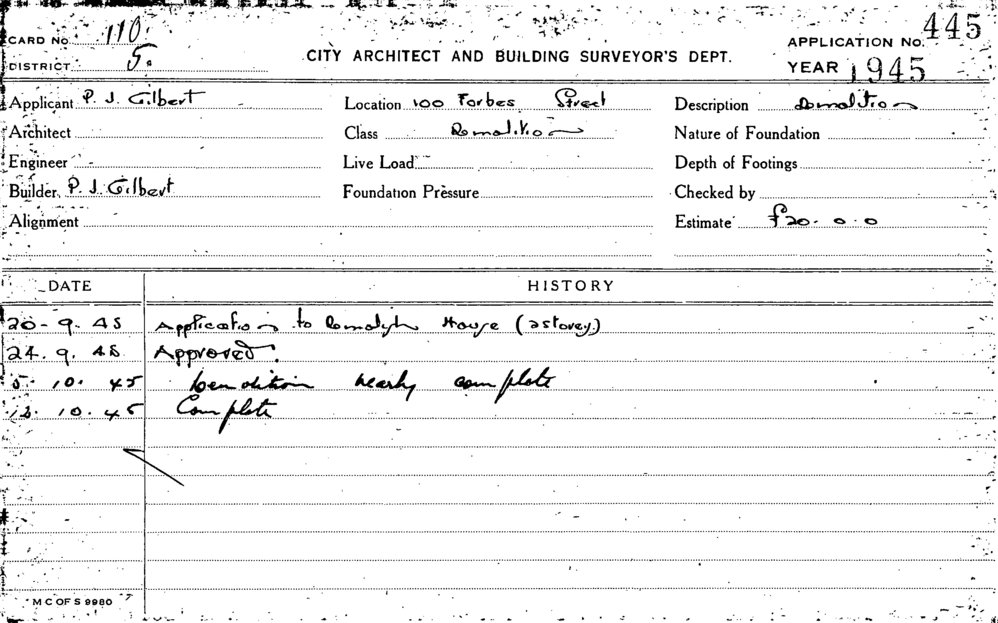 CARD No. 110.
DISTRICT 5.
CITY ARCHITECT AND BUILDING SURVEYOR'S DEPT.
APPLICATION No. 445
YEAR 1945
Applicant P. J. Gilbert
Location 100 Forbes Street
Description Demolition
Architect
Class Demolition
Nature of Foundation
Engineer
Live Load
Depth of Footings
Builder P. J. Gilbert
Foundation Pressure
Checked by
Alignment
Estimate £20. 0. 0
DATE HISTORY
20-9.45 Application to Demolish House (2 storey)
24.9.45 Approved.
5.10.45 Demolition nearly complete
10.45 Complete
M C OF S 9980